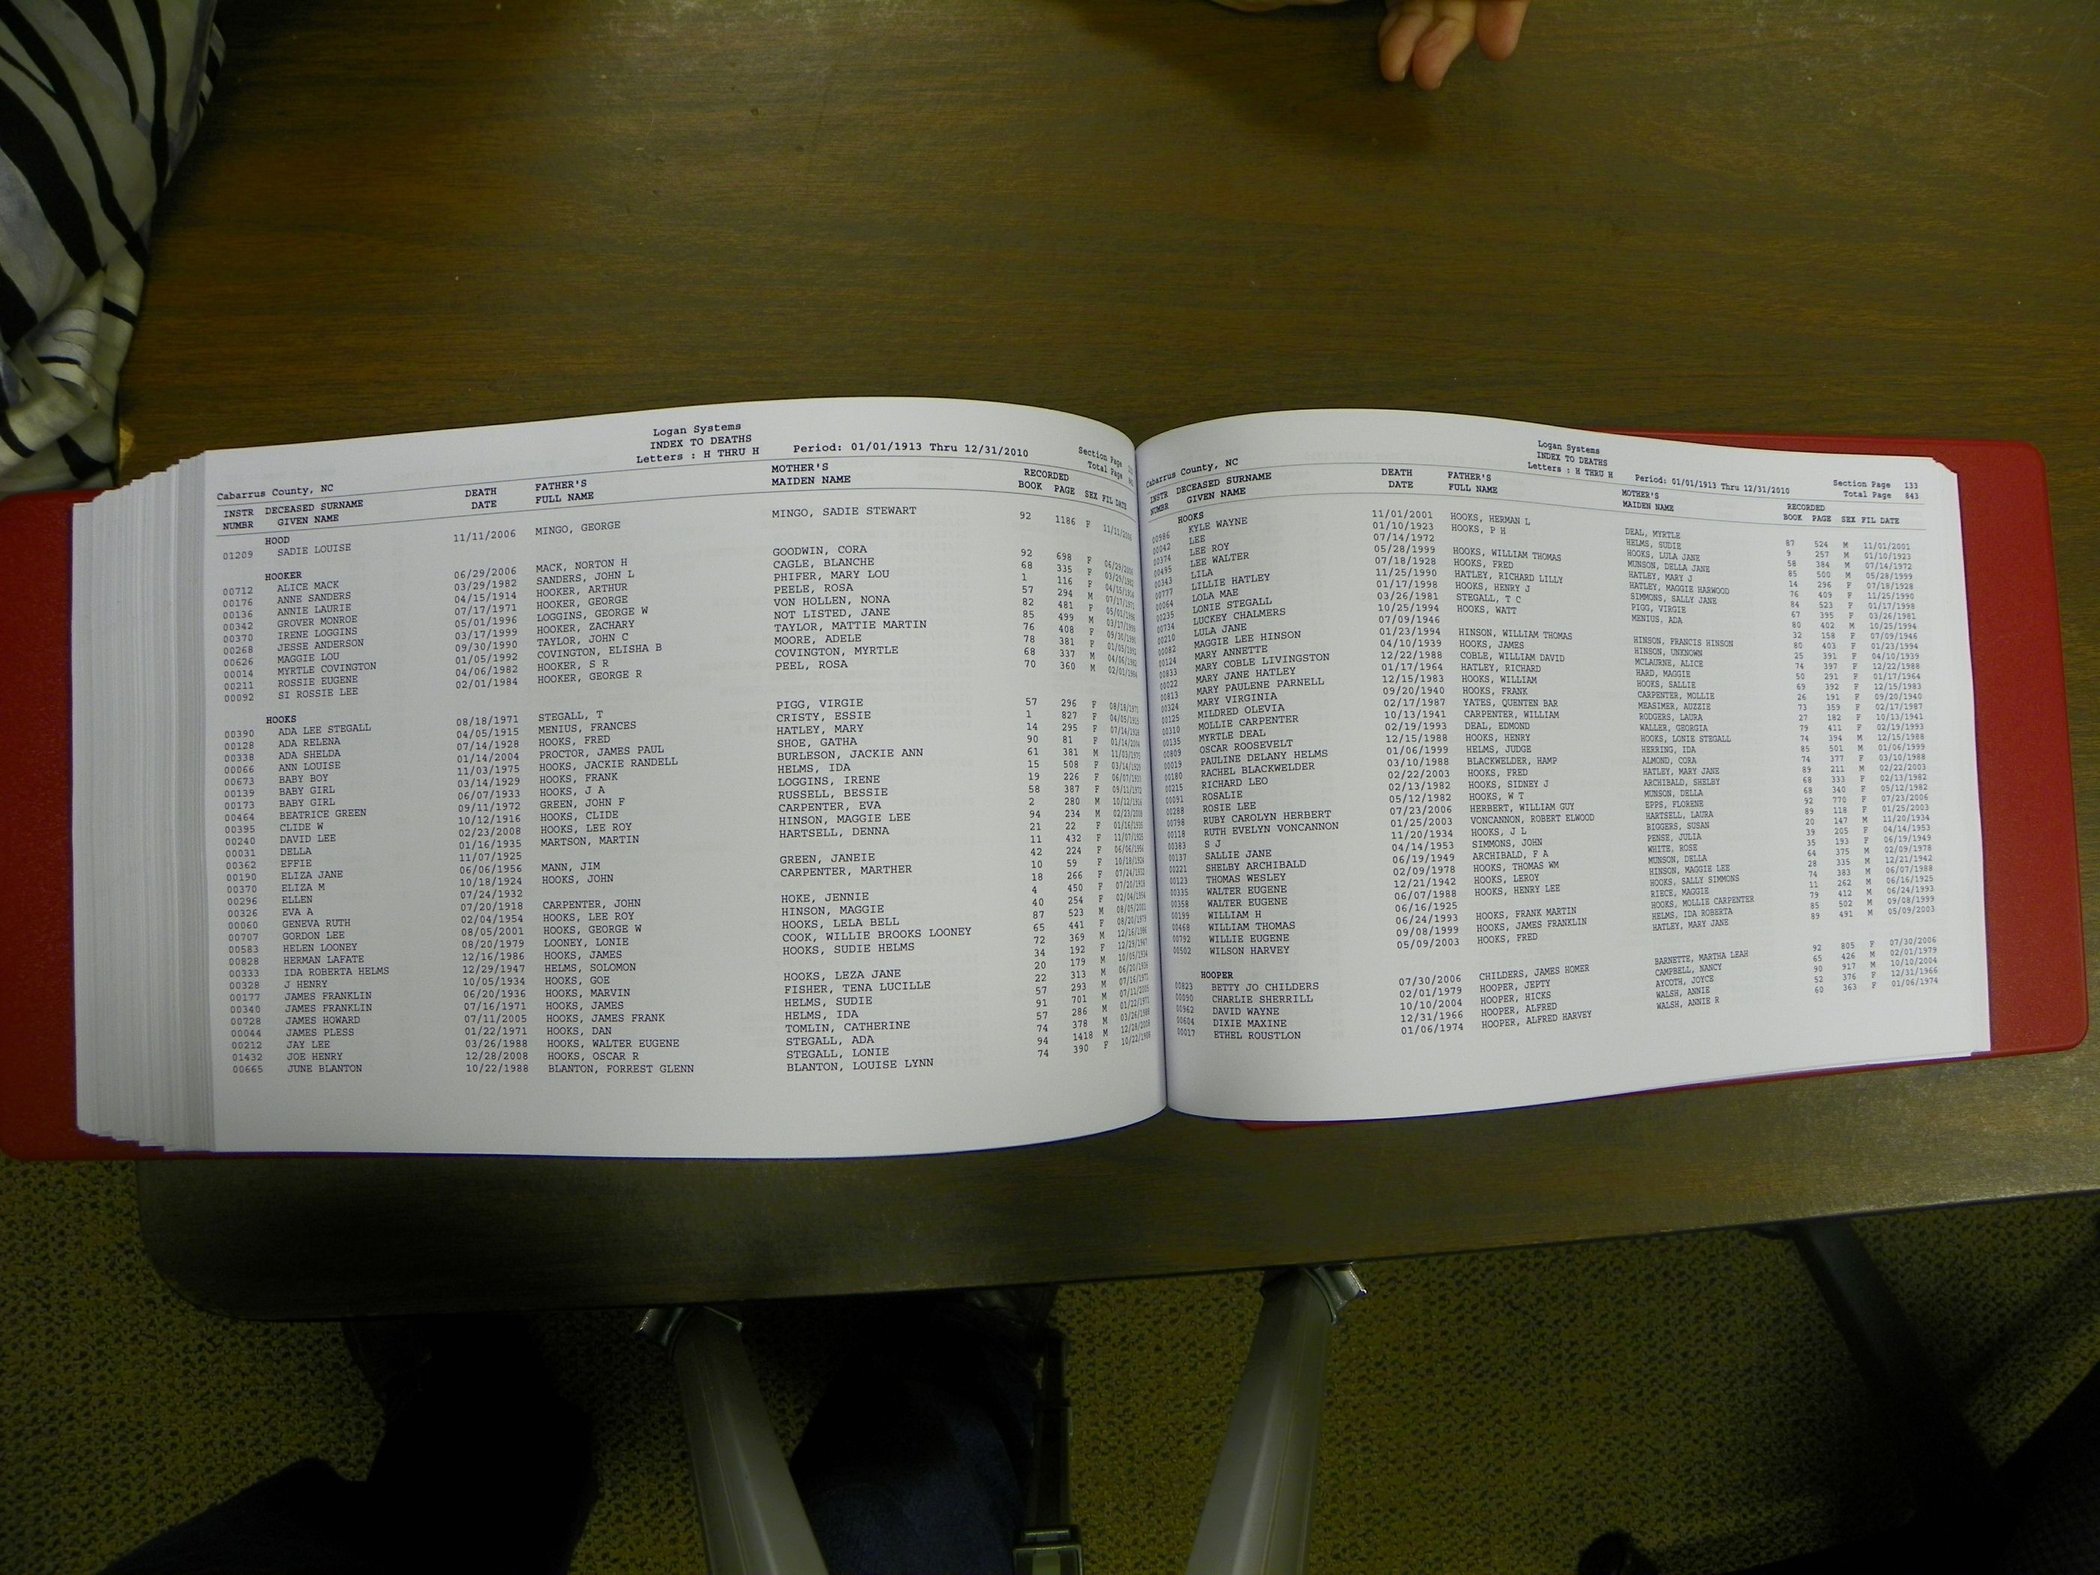 Logan Systems
INDEX TO DEATHS
Cabarrus County, NC Letters : H THRU H Period: 01/01/1913 Thru 12/31/2010 Section Page Total Page
INSTR NUMBR DECEASED SURNAME GIVEN NAME DEATH DATE FATHER'S FULL NAME MOTHER'S MAIDEN NAME RECORDED BOOK PAGE SEX FIL DATE
HOOD
01209 SADIE LOUISE 11/11/2006 MINGO, GEORGE MINGO, SADIE STEWART 92 1186 F 11/11/2006
HOOKER
00712 ALICE MACK 06/29/2006 MACK, NORTON H GOODWIN, CORA 92 698 F 06/29/2006
00176 ANNE SANDERS 03/29/1982 SANDERS, JOHN L CAGLE, BLANCHE 68 335 F 03/29/1982
00136 ANNIE LAURIE 04/15/1914 HOOKER, ARTHUR PHIFER, MARY LOU 1 116 F 04/15/1914
00342 GROVER MONROE 07/17/1971 HOOKER, GEORGE PEELE, ROSA 57 294 M 07/17/1971
00370 IRENE LOGGINS 05/01/1996 LOGGINS, GEORGE W VON HOLLEN, NONA 82 481 F 05/01/1996
00268 JESSE ANDERSON 03/17/1999 HOOKER, ZACHARY NOT LISTED, JANE 85 499 M 03/17/1999
00626 MAGGIE LOU 09/30/1990 TAYLOR, JOHN C TAYLOR, MATTIE MARTIN 76 408 F 09/30/1990
00014 MYRTLE COVINGTON 01/05/1992 COVINGTON, ELISHA B MOORE, ADELE 78 381 F 01/05/1992
00211 ROSSIE EUGENE 04/06/1982 HOOKER, S R COVINGTON, MYRTLE 68 337 M 04/06/1982
00092 SI ROSSIE LEE 02/01/1984 HOOKER, GEORGE R PEEL, ROSA 70 360 M 02/01/1984
HOOKS
00390 ADA LEE STEGALL 08/18/1971 STEGALL, T PIGG, VIRGIE 57 296 F 08/18/1971
00128 ADA RELENA 04/05/1915 MENIUS, FRANCES CRISTY, ESSIE 1 827 F 04/05/1915
00338 ADA SHELDA 07/14/1928 HOOKS, FRED HATLEY, MARY 14 295 F 07/14/1928
00066 ANN LOUISE 01/14/2004 PROCTOR, JAMES PAUL SHOE, GATHA 90 81 F 01/14/2004
00673 BABY BOY 11/03/1975 HOOKS, JACKIE RANDELL BURLESON, JACKIE ANN 61 381 M 11/03/1975
00139 BABY GIRL 03/14/1929 HOOKS, FRANK HELMS, IDA 15 508 F 03/14/1929
00173 BABY GIRL 06/07/1933 HOOKS, J A LOGGINS, IRENE 19 226 F 06/07/1933
00464 BEATRICE GREEN 09/11/1972 GREEN, JOHN F RUSSELL, BESSIE 58 387 F 09/11/1972
00395 CLIDE W 10/12/1916 HOOKS, CLIDE CARPENTER, EVA 2 280 M 10/12/1916
00240 DAVID LEE 02/23/2008 HOOKS, LEE ROY HINSON, MAGGIE LEE 94 234 M 02/23/2008
00031 DELLA 01/16/1935 MARTSON, MARTIN HARTSELL, DENNA 21 22 F 01/16/1935
00362 EFFIE 11/07/1925 11 432 F 11/07/1925
00190 ELIZA JANE 06/06/1956 MANN, JIM GREEN, JANEIE 42 224 F 06/06/1956
00370 ELIZA M 10/18/1924 HOOKS, JOHN CARPENTER, MARTHER 10 59 F 10/18/1924
00296 ELLEN 07/24/1932 18 266 F 07/24/1932
00326 EVA A 07/20/1918 CARPENTER, JOHN HOKE, JENNIE 4 450 F 07/20/1918
00060 GENEVA RUTH 02/04/1954 HOOKS, LEE ROY HINSON, MAGGIE 40 254 F 02/04/1954
00707 GORDON LEE 08/05/2001 HOOKS, GEORGE W HOOKS, LELA BELL 87 523 M 08/05/2001
00583 HELEN LOONEY 08/20/1979 LOONEY, LONIE COOK, WILLIE BROOKS LOONEY 65 441 F 08/20/1979
00828 HERMAN LAFATE 12/16/1986 HOOKS, JAMES HOOKS, SUDIE HELMS 72 369 M 12/16/1986
00333 IDA ROBERTA HELMS 12/29/1947 HELMS, SOLOMON 34 192 F 12/29/1947
00328 J HENRY 10/05/1934 HOOKS, GOE HOOKS, LEZA JANE 20 179 M 10/05/1934
00177 JAMES FRANKLIN 06/20/1936 HOOKS, MARVIN FISHER, TENA LUCILLE 22 313 M 06/20/1936
00340 JAMES FRANKLIN 07/16/1971 HOOKS, JAMES HELMS, SUDIE 57 293 M 07/16/1971
00728 JAMES HOWARD 07/11/2005 HOOKS, JAMES FRANK HELMS, IDA 91 701 M 07/11/2005
00044 JAMES PLESS 01/22/1971 HOOKS, DAN TOMLIN, CATHERINE 57 286 M 01/22/1971
00212 JAY LEE 03/26/1988 HOOKS, WALTER EUGENE STEGALL, ADA 74 378 M 03/26/1988
01432 JOE HENRY 12/28/2008 HOOKS, OSCAR R STEGALL, LONIE 94 1418 M 12/28/2008
00665 JUNE BLANTON 10/22/1988 BLANTON, FORREST GLENN BLANTON, LOUISE LYNN 74 390 F 10/22/1988
Logan Systems
INDEX TO DEATHS
Cabarrus County, NC Letters : H THRU H Period: 01/01/1913 Thru 12/31/2010 Section Page 133 Total Page 843
INSTR NUMBR DECEASED SURNAME GIVEN NAME DEATH DATE FATHER'S FULL NAME MOTHER'S MAIDEN NAME RECORDED BOOK PAGE SEX FIL DATE
HOOKS
00986 KYLE WAYNE 11/01/2001 HOOKS, HERMAN L DEAL, MYRTLE 87 524 M 11/01/2001
00042 LEE 01/10/1923 HOOKS, P H HELMS, SUDIE 9 257 M 01/10/1923
00374 LEE ROY 07/14/1972 HOOKS, LULA JANE 58 384 M 07/14/1972
00495 LEE WALTER 05/28/1999 HOOKS, WILLIAM THOMAS MUNSON, DELLA JANE 85 500 M 05/28/1999
00343 LILA 07/18/1928 HOOKS, FRED HATLEY, MARY J 14 296 F 07/18/1928
00777 LILLIE HATLEY 11/25/1990 HATLEY, RICHARD LILLY HATLEY, MAGGIE HARWOOD 76 409 F 11/25/1990
00064 LOLA MAE 01/17/1998 HOOKS, HENRY J SIMMONS, SALLY JANE 84 523 F 01/17/1998
00235 LONIE STEGALL 03/26/1981 STEGALL, T C PIGG, VIRGIE 67 395 F 03/26/1981
00734 LUCKEY CHALMERS 10/25/1994 HOOKS, WATT MENIUS, ADA 80 402 M 10/25/1994
00210 LULA JANE 07/09/1946 32 158 F 07/09/1946
00082 MAGGIE LEE HINSON 01/23/1994 HINSON, WILLIAM THOMAS HINSON, FRANCIS HINSON 80 403 F 01/23/1994
00124 MARY ANNETTE 04/10/1939 HOOKS, JAMES HINSON, UNKNOWN 25 391 F 04/10/1939
00833 MARY COBLE LIVINGSTON 12/22/1988 COBLE, WILLIAM DAVID MCLAURNE, ALICE 74 397 F 12/22/1988
00022 MARY JANE HATLEY 01/17/1964 HATLEY, RICHARD HARD, MAGGIE 50 291 F 01/17/1964
00813 MARY PAULENE PARNELL 12/15/1983 HOOKS, WILLIAM HOOKS, SALLIE 69 392 F 12/15/1983
00324 MARY VIRGINIA 09/20/1940 HOOKS, FRANK CARPENTER, MOLLIE 26 191 F 09/20/1940
00125 MILDRED OLEVIA 02/17/1987 YATES, QUENTEN BAR MEASIMER, AUZZIE 73 359 F 02/17/1987
00310 MOLLIE CARPENTER 10/13/1941 CARPENTER, WILLIAM RODGERS, LAURA 27 182 F 10/13/1941
00135 MYRTLE DEAL 02/19/1993 DEAL, EDMOND WALLER, GEORGIA 79 411 F 02/19/1993
00809 OSCAR ROOSEVELT 12/15/1988 HOOKS, HENRY HOOKS, LONIE STEGALL 74 394 M 12/15/1988
00019 PAULINE DELANY HELMS 01/06/1999 HELMS, JUDGE HERRING, IDA 85 501 M 01/06/1999
00180 RACHEL BLACKWELDER 03/10/1988 BLACKWELDER, HAMP ALMOND, CORA 74 377 F 03/10/1988
00215 RICHARD LEO 02/22/2003 HOOKS, FRED HATLEY, MARY JANE 89 211 M 02/22/2003
00091 ROSALIE 02/13/1982 HOOKS, SIDNEY J ARCHIBALD, SHELBY 68 333 F 02/13/1982
00288 ROSIE LEE 05/12/1982 HOOKS, W T MUNSON, DELLA 68 340 F 05/12/1982
00798 RUBY CAROLYN HERBERT 07/23/2006 HERBERT, WILLIAM GUY EPPS, FLORENE 92 770 F 07/23/2006
00118 RUTH EVELYN VONCANNON 01/25/2003 VONCANNON, ROBERT ELWOOD HARTSELL, LAURA 89 118 F 01/25/2003
00383 S J 11/20/1934 HOOKS, J L BIGGERS, SUSAN 20 147 M 11/20/1934
00137 SALLIE JANE 04/14/1953 SIMMONS, JOHN PENSE, JULIA 39 205 F 04/14/1953
00221 SHELBY ARCHIBALD 06/19/1949 ARCHIBALD, F A WHITE, ROSE 35 193 F 06/19/1949
00123 THOMAS WESLEY 02/09/1978 HOOKS, THOMAS WM MUNSON, DELLA 64 375 M 02/09/1978
00335 WALTER EUGENE 12/21/1942 HOOKS, LEROY HINSON, MAGGIE LEE 28 335 M 12/21/1942
00358 WALTER EUGENE 06/07/1988 HOOKS, HENRY LEE HOOKS, SALLY SIMMONS 74 383 M 06/07/1988
00199 WILLIAM H 06/16/1925 RIECE, MAGGIE 11 262 M 06/16/1925
00468 WILLIAM THOMAS 06/24/1993 HOOKS, FRANK MARTIN HOOKS, MOLLIE CARPENTER 79 412 M 06/24/1993
00792 WILLIE EUGENE 09/08/1999 HOOKS, JAMES FRANKLIN HELMS, IDA ROBERTA 85 502 M 09/08/1999
00502 WILSON HARVEY 05/09/2003 HOOKS, FRED HATLEY, MARY JANE 89 491 M 05/09/2003
HOOPER
00823 BETTY JO CHILDERS 07/30/2006 CHILDERS, JAMES HOMER BARNETTE, MARTHA LEAH 92 805 F 07/30/2006
00090 CHARLIE SHERRILL 02/01/1979 HOOPER, JEPTY CAMPBELL, NANCY 65 426 M 02/01/1979
00962 DAVID WAYNE 10/10/2004 HOOPER, HICKS AYCOTH, JOYCE 90 917 M 10/10/2004
00604 DIXIE MAXINE 12/31/1966 HOOPER, ALFRED WALSH, ANNIE 52 376 F 12/31/1966
00017 ETHEL ROUSTLON 01/06/1974 HOOPER, ALFRED HARVEY WALSH, ANNIE R 60 363 F 01/06/1974